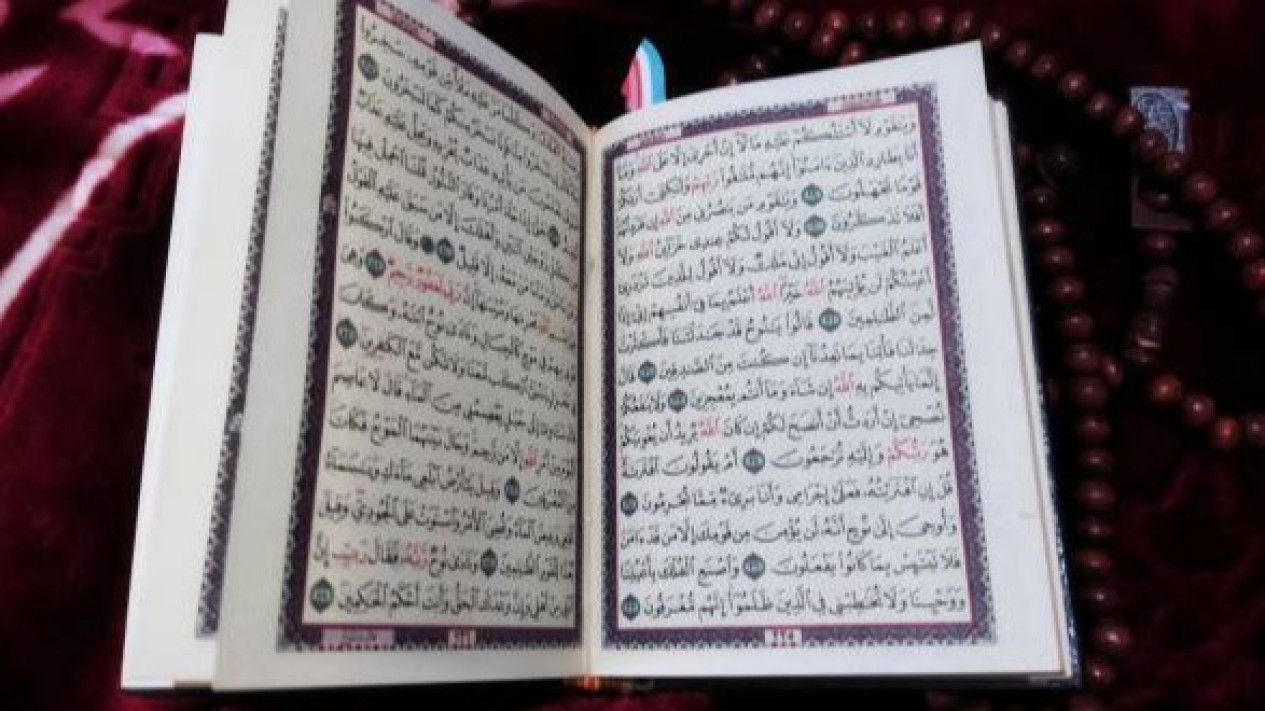 وَيَٰقَوْمِ لَآ أَسْـَٔلُكُمْ عَلَيْهِ مَالًا إِنْ أَجْرِىَ إِلَّا عَلَى ٱللَّهِ وَمَآ
أَنَا۠ بِطَارِدِ ٱلَّذِينَ ءَامَنُوٓا۟ إِنَّهُم مُّلَٰقُوا۟ رَبِّهِمْ وَلَٰكِنِّىٓ أَرَىٰكُمْ
قَوْمًا تَجْهَلُونَ وَيَٰقَوْمِ مَن يَنصُرُنِى مِنَ ٱللَّهِ إِن طَرَدتُّهُمْ
أَفَلَا تَذَكَّرُونَ وَلَآ أَقُولُ لَكُمْ عِندِى خَزَآئِنُ ٱللَّهِ وَلَآ
أَعْلَمُ ٱلْغَيْبَ وَلَآ أَقُولُ إِنِّى مَلَكٌ وَلَآ أَقُولُ لِلَّذِينَ تَزْدَرِىٓ
أَعْيُنُكُمْ لَن يُؤْتِيَهُمُ ٱللَّهُ خَيْرًا ٱللَّهُ أَعْلَمُ بِمَا فِىٓ أَنفُسِهِمْ إِنِّىٓ إِذًا
لَّمِنَ ٱلظَّٰلِمِينَ قَالُوا۟ يَٰنُوحُ قَدْ جَٰدَلْتَنَا فَأَكْثَرْتَ
جِدَٰلَنَا فَأْتِنَا بِمَا تَعِدُنَآ إِن كُنتَ مِنَ ٱلصَّٰدِقِينَ قَالَ
إِنَّمَا يَأْتِيكُم بِهِ ٱللَّهُ إِن شَآءَ وَمَآ أَنتُم بِمُعْجِزِينَ وَلَا يَنفَعُكُمْ
نُصْحِىٓ إِنْ أَرَدتُّ أَنْ أَنصَحَ لَكُمْ إِن كَانَ ٱللَّهُ يُرِيدُ أَن يُغْوِيَكُمْ
هُوَ رَبُّكُمْ وَإِلَيْهِ تُرْجَعُونَ أَمْ يَقُولُونَ ٱفْتَرَىٰهُ
قُلْ إِنِ ٱفْتَرَيْتُهُۥ فَعَلَىَّ إِجْرَامِى وَأَنَا۠ بَرِىٓءٌ مِّمَّا تُجْرِمُونَ
وَأُوحِىَ إِلَىٰ نُوحٍ أَنَّهُۥ لَن يُؤْمِنَ مِن قَوْمِكَ إِلَّا مَن قَدْ ءَامَنَ
فَلَا تَبْتَئِسْ بِمَا كَانُوا۟ يَفْعَلُونَ وَٱصْنَعِ ٱلْفُلْكَ بِأَعْيُنِنَا
وَوَحْيِنَا وَلَا تُخَٰطِبْنِى فِى ٱلَّذِينَ ظَلَمُوٓا۟ إِنَّهُم مُّغْرَقُونَ
وَكُلَّمَا مَرَّ عَلَيْهِ مَلَأٌ مِّن قَوْمِهِۦ سَخِرُوا۟
فَإِنَّا نَسْخَرُ مِنكُمْ كَمَا تَسْخَرُونَ
مَن يَأْتِيهِ عَذَابٌ يُخْزِيهِ وَيَحِلُّ عَلَيْهِ عَذَابٌ
حَتَّىٰٓ إِذَا جَآءَ أَمْرُنَا وَفَارَ ٱلتَّنُّورُ قُلْنَا ٱحْمِلْ فِيهَا
زَوْجَيْنِ ٱثْنَيْنِ وَأَهْلَكَ إِلَّا مَن سَبَقَ عَلَيْهِ ٱلْقَوْلُ
مَعَهُۥٓ إِلَّا قَلِيلٌ وَقَالَ ٱرْكَبُوا۟
وَمُرْسَىٰهَآ إِنَّ رَبِّى لَغَفُورٌ رَّحِيمٌ وَهِىَ
بِهِمْ فِى مَوْجٍ كَٱلْجِبَالِ وَنَادَىٰ نُوحٌ ٱبْنَهُۥ وَكَانَ
ٱرْكَب مَّعَنَا وَلَا تَكُن مَّعَ ٱلْكَٰفِرِينَ
إِلَىٰ جَبَلٍ يَعْصِمُنِى مِنَ ٱلْمَآءِ قَالَ لَا عَاصِمَ
ٱللَّهِ إِلَّا مَن رَّحِمَ وَحَالَ بَيْنَهُمَا ٱلْمَوْجُ فَكَانَ
مِنَ ٱلْمُغْرَقِينَ وَقِيلَ يَٰٓأَرْضُ ٱبْلَعِى مَآءَكِ وَيَٰسَمَآءُ
وَغِيضَ ٱلْمَآءُ وَقُضِىَ ٱلْأَمْرُ وَٱسْتَوَتْ عَلَى ٱلْجُودِىِّ وَقِيلَ
بُعْدًا لِّلْقَوْمِ ٱلظَّٰلِمِينَ وَنَادَىٰ نُوحٌ رَّبَّهُۥ فَقَالَ رَبِّ إِنَّ
ٱبْنِى مِنْ أَهْلِى وَإِنَّ وَعْدَكَ ٱلْحَقُّ وَأَنتَ أَحْكَمُ ٱلْحَٰكِمِينَ